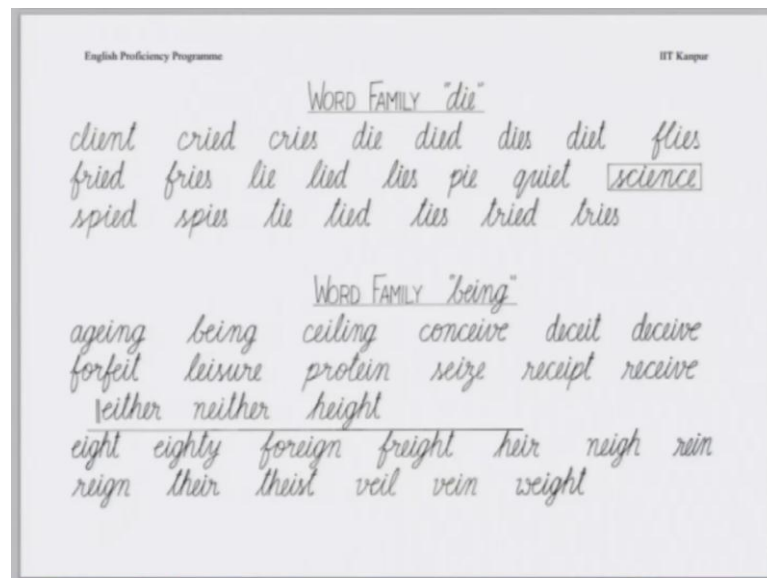 English Proficiency Programme IIT Kanpur
WORD FAMILY "die"
client cried cries die died dies diet flies
fried fries lie lied lies pie quiet science
spied spies tie tied ties tried tries
WORD FAMILY "being"
ageing being ceiling conceive deceit deceive
forfeit leisure protein seize receipt receive
either neither height
eight eighty foreign freight heir neigh rein
reign their theist veil vein weight